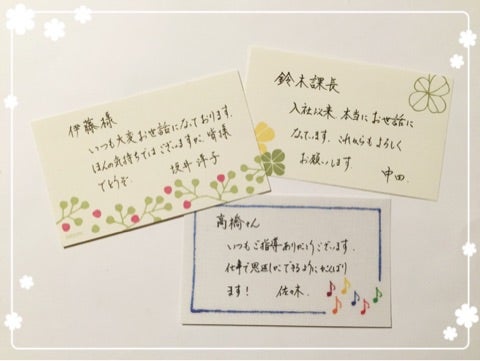 伊藤様
いつも大変お世話になっております。
ほんの気持ちではございますが、皆様
でどうぞ。 坂井洋子
鈴木課長
入社以来 本当にお世話に
なっています。これからもよろしく
お願いします 中田
高橋さん
いつもご指導ありがとうございます。
仕事で恩返しができるようにがんばり
ます! 佐々木